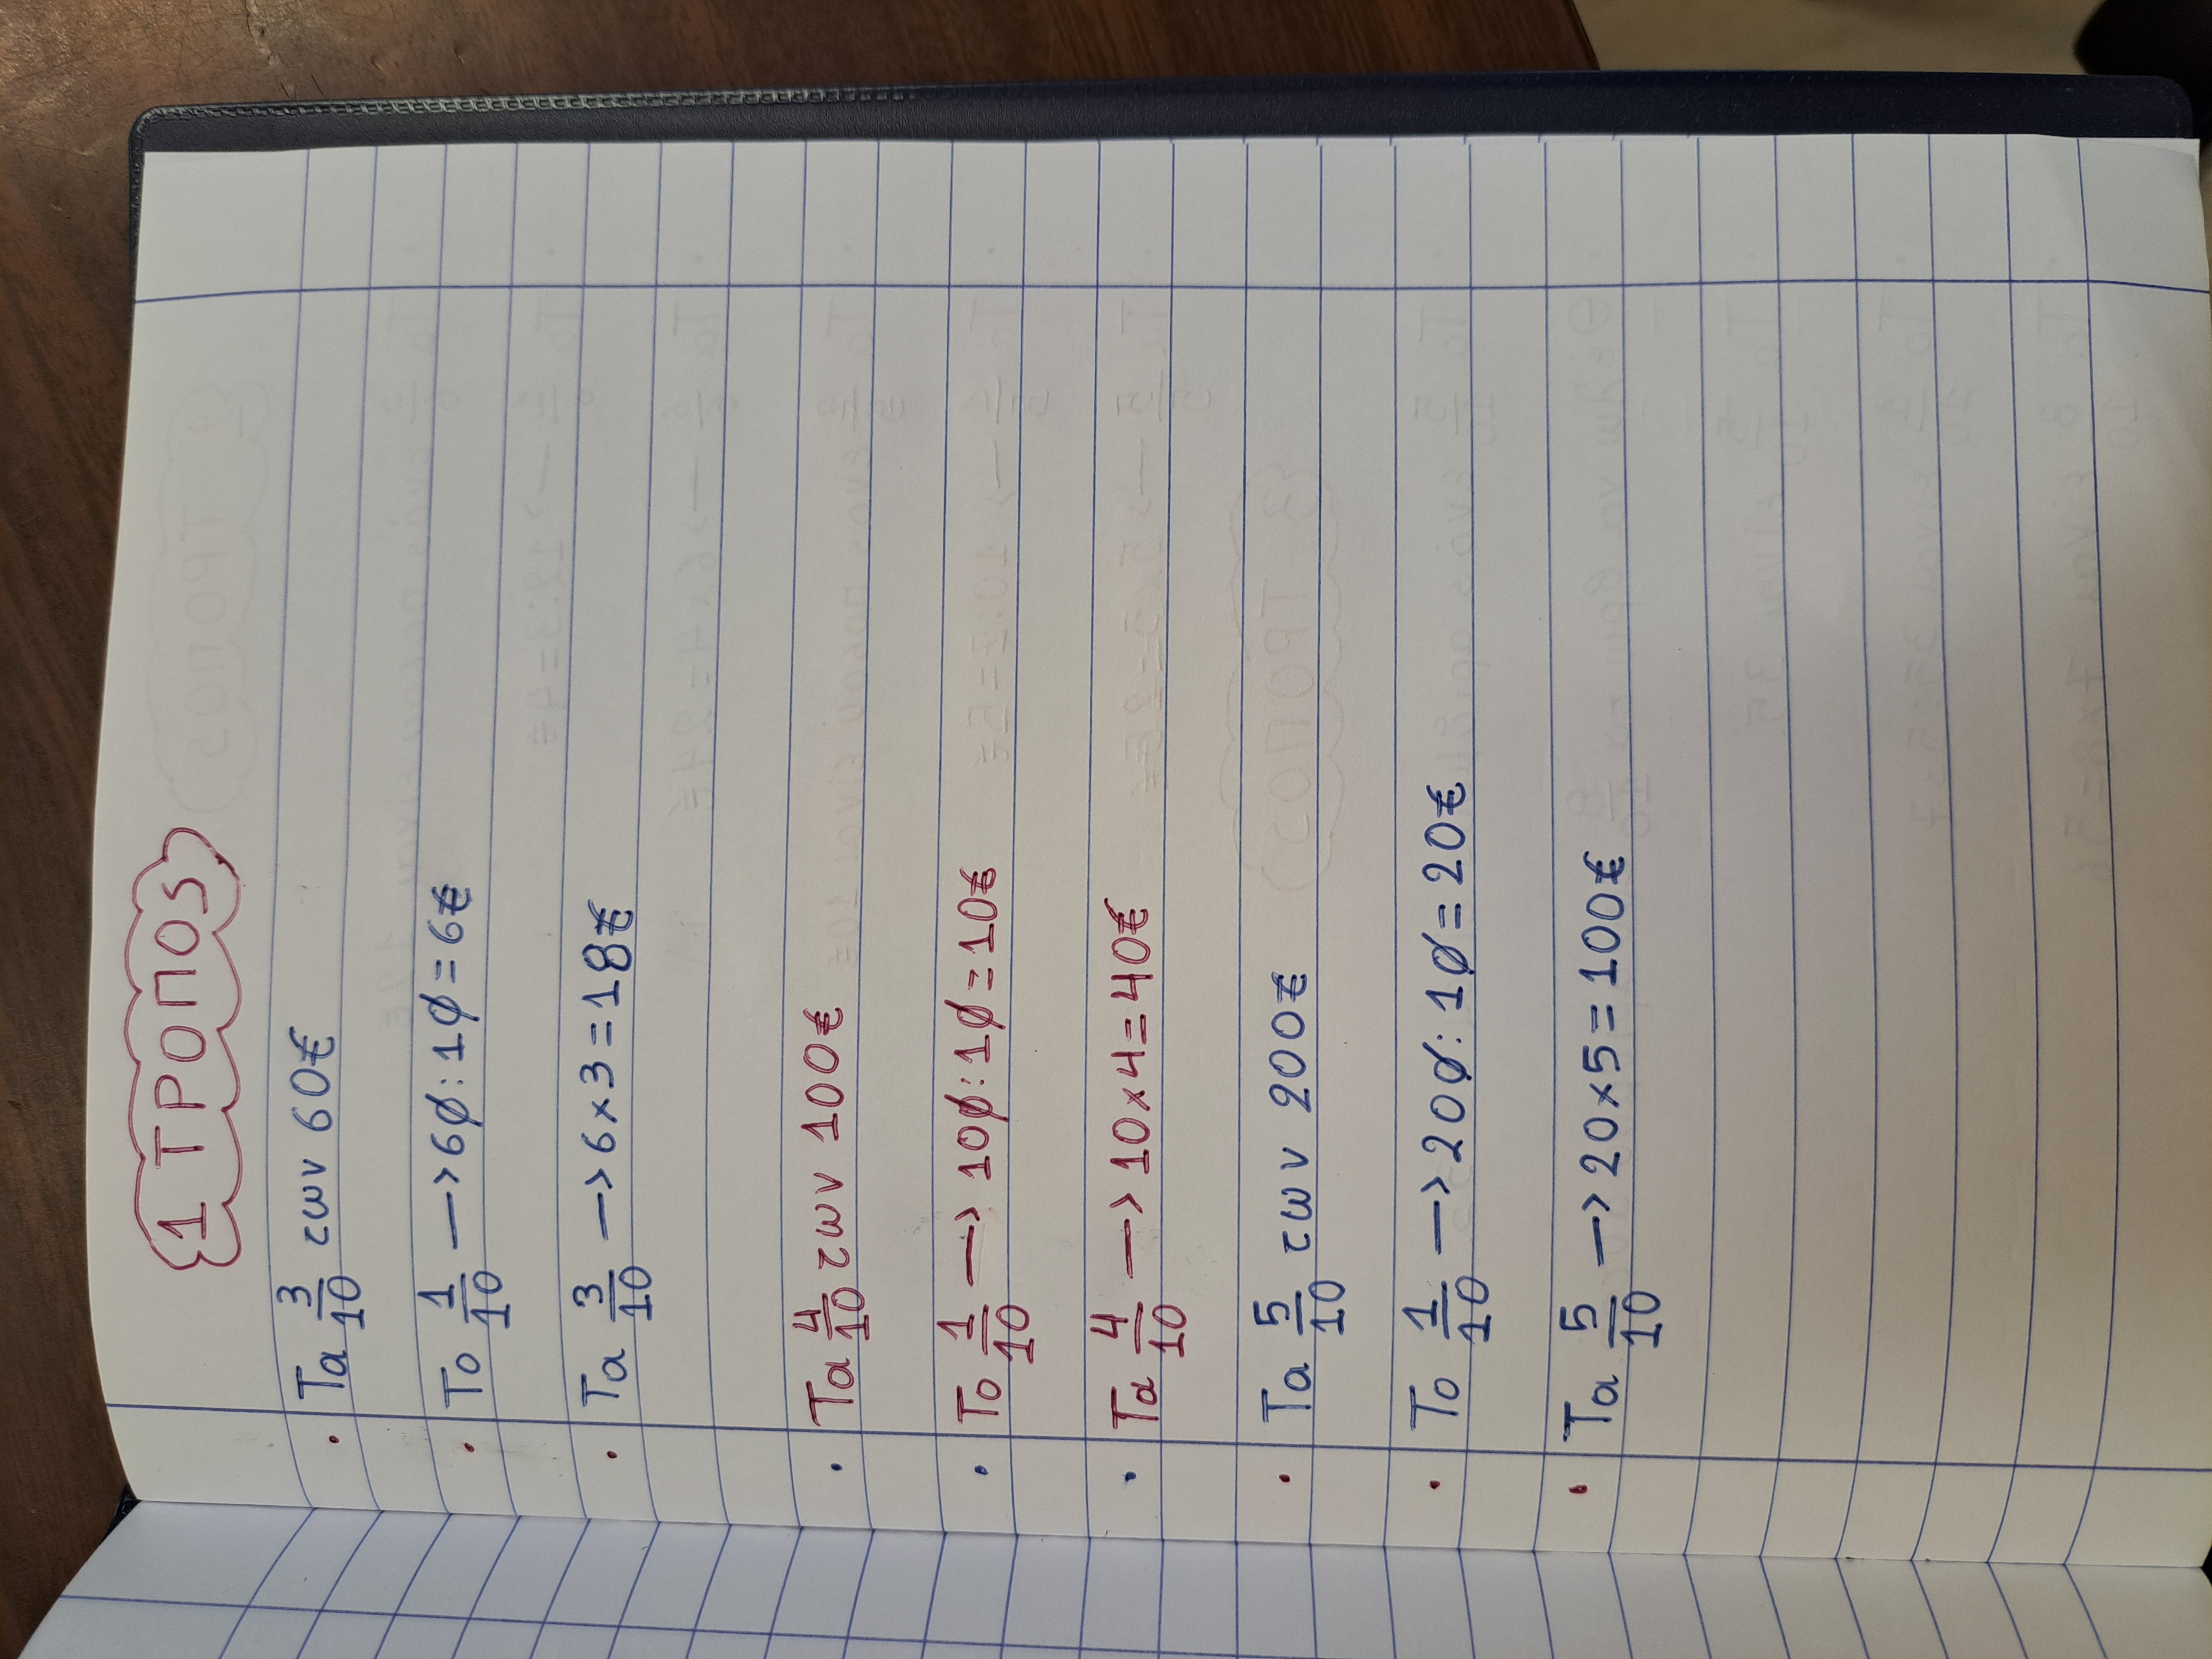 1 ΤΡΟΠΟS
. Τα 3/10 των 60€
. Το 1/10 —> 60:10=6€
. Τα 3/10 —> 6x3=18€
. Τα 4/10 των 100€
. Το 1/10 —> 100:10=10€
. Τα 4/10 —> 10x4=40€
. Τα 5/10 των 200€
. Το 1/10 —> 200:10=20€
. Τα 5/10 —> 20x5=100€